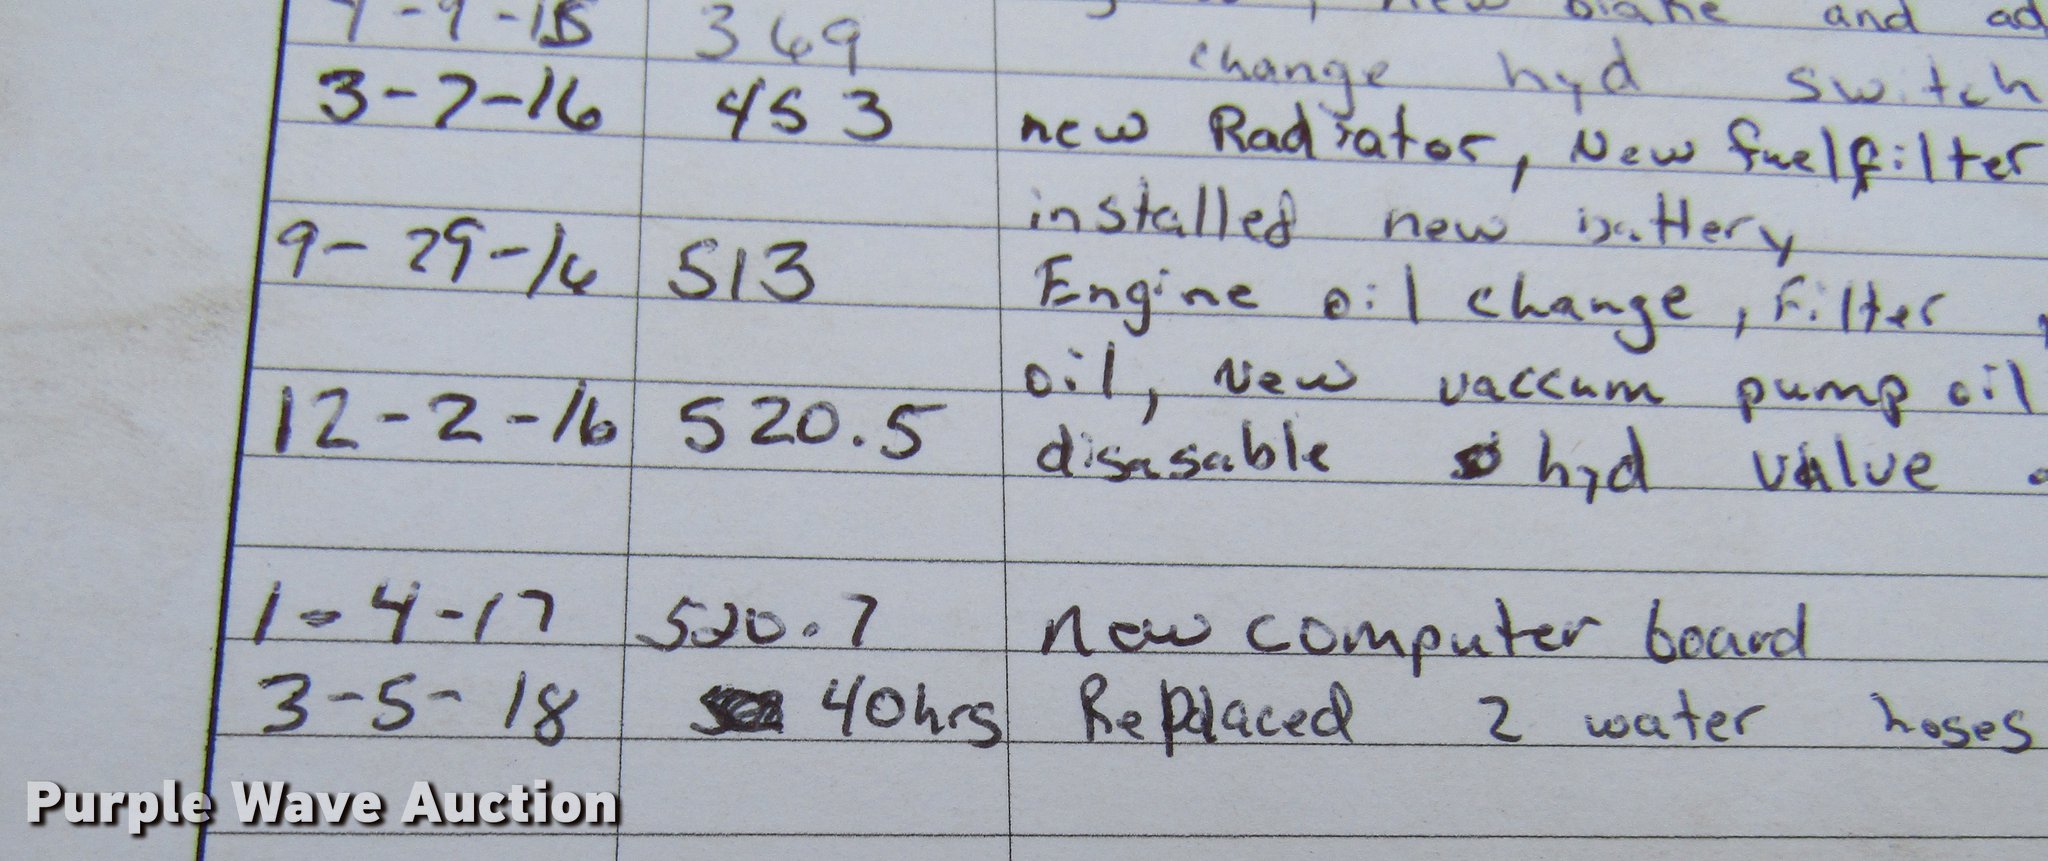 9-15 369 new brake and
change hyd switch
3-7-16 453 new Radiator, New fuelfilter
installed new battery
9-29-16 513 Engine oil change, Filter,
oil, New vaccum pump oil
12-2-16 520.5 disasable hyd valve
1-4-17 520.7 new computer board
3-5-18 40hrs Replaced 2 water hoses
Purple Wave Auction